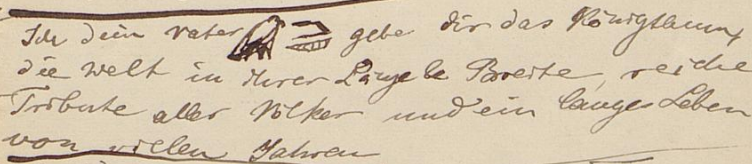 Ich dein Vater gebe dir das Königthum,
die Welt in ihrer Länge & Breite, reiche
Tribute aller Völker und ein langes Leben
von vielen Jahren